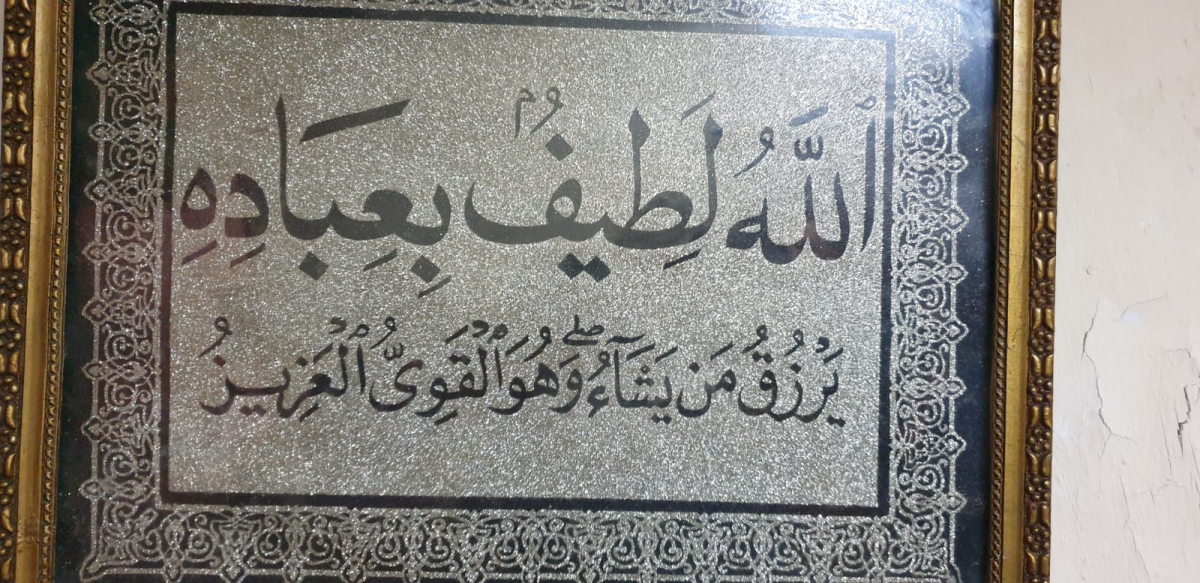 ٱللَّهُ لَطِيفُۢ بِعِبَادِهِ
يَرْزُقُ مَن يَشَآءُ ۖ وَهُوَ ٱلْقَوِىُّ ٱلْعَزِيزُ